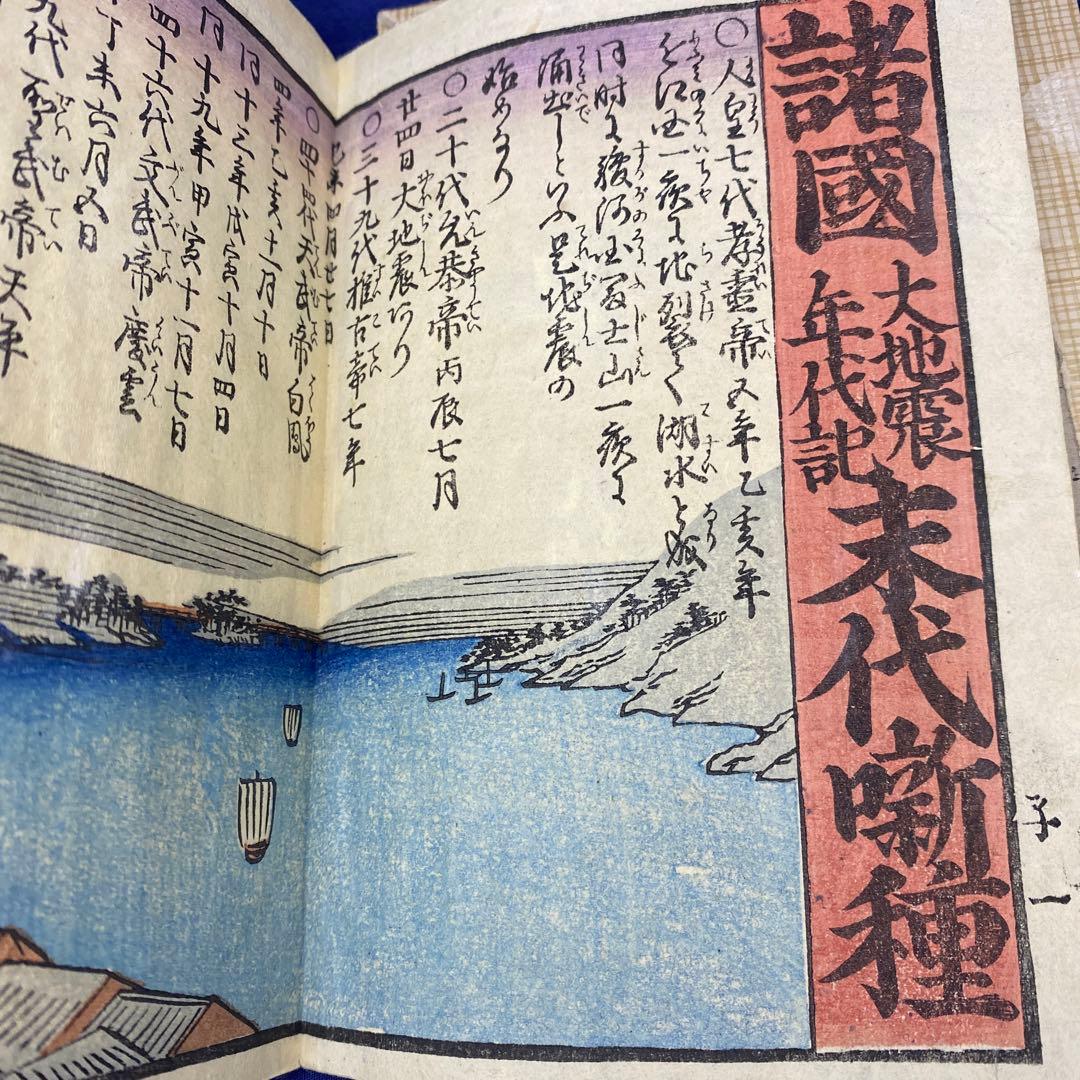 諸國
大地震
年代記
末代噺種
〇人皇七代孝霊帝五年乙亥年
近江国一夜に地裂て湖水と成
同時に駿河国冨士山一夜に
涌出しといふ是地震の
始めなり
〇二十代允恭帝丙辰七月
廿四日大地震あり
〇三十九代推古帝七年
己未四月廿七日
〇四十四代天武帝白鳳
四年乙亥十一月十日
同十三年戊寅十月四日
同十九年甲寅十一月七日
四十六代文武帝慶雲
丁未六月五日
九代聖武帝天平
子一